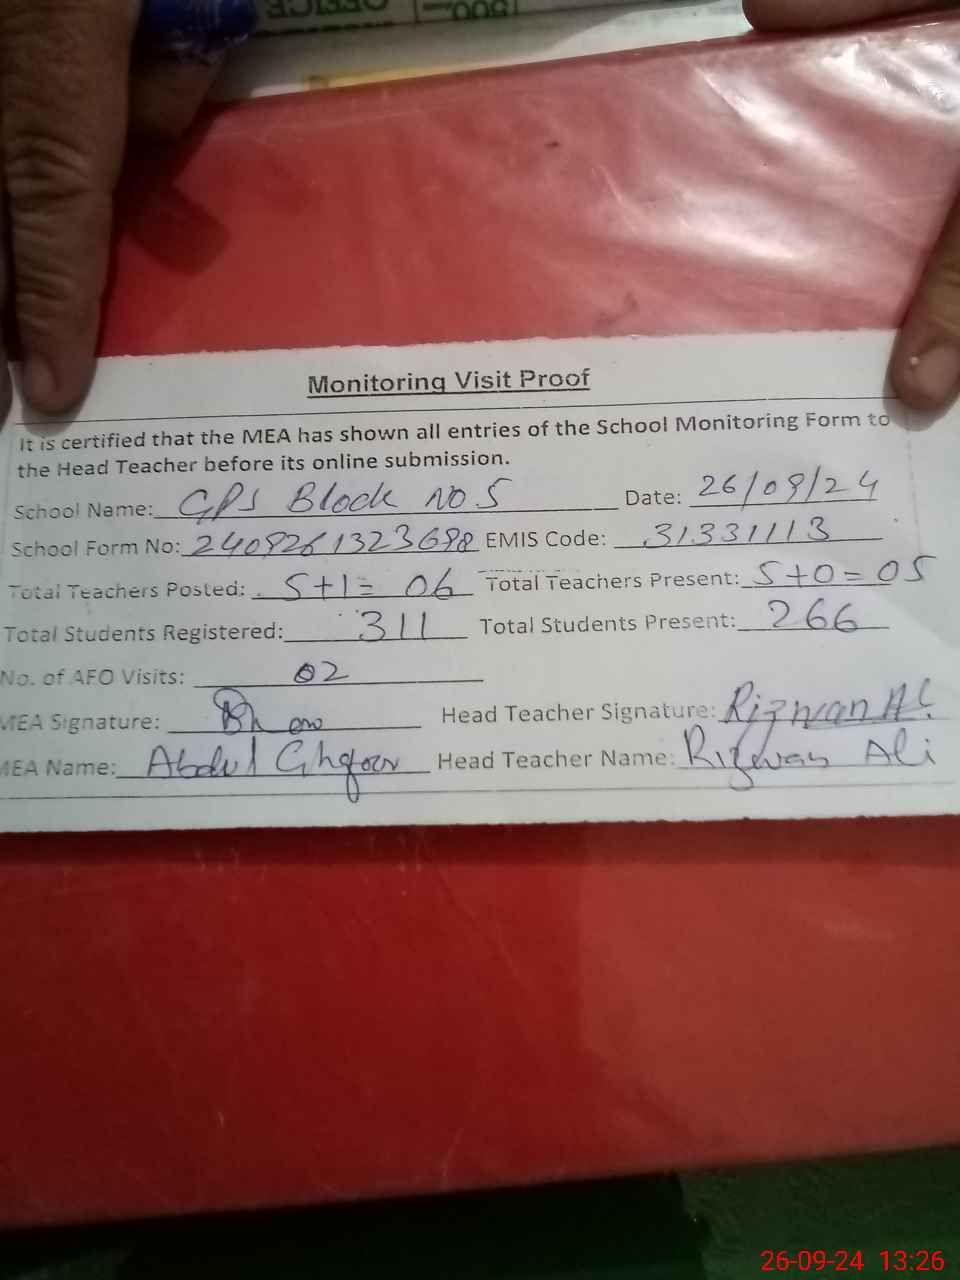 OFFICE
500
Monitoring Visit Proof
It is certified that the MEA has shown all entries of the School Monitoring Form to
the Head Teacher before its online submission.
School Name: GPS Block NO 5 Date: 26/09/24
School Form No: 2409261323698 EMIS Code: 31331113
Total Teachers Posted: 5+1= 06 Total Teachers Present: 5+0=05
Total Students Registered: 311 Total Students Present: 266
No. of AFO Visits: 02
MEA Signature: Head Teacher Signature: Rizwan Ali
MEA Name: Abdul Ghfoor Head Teacher Name: Rizwan Ali
26-09-24 13:26